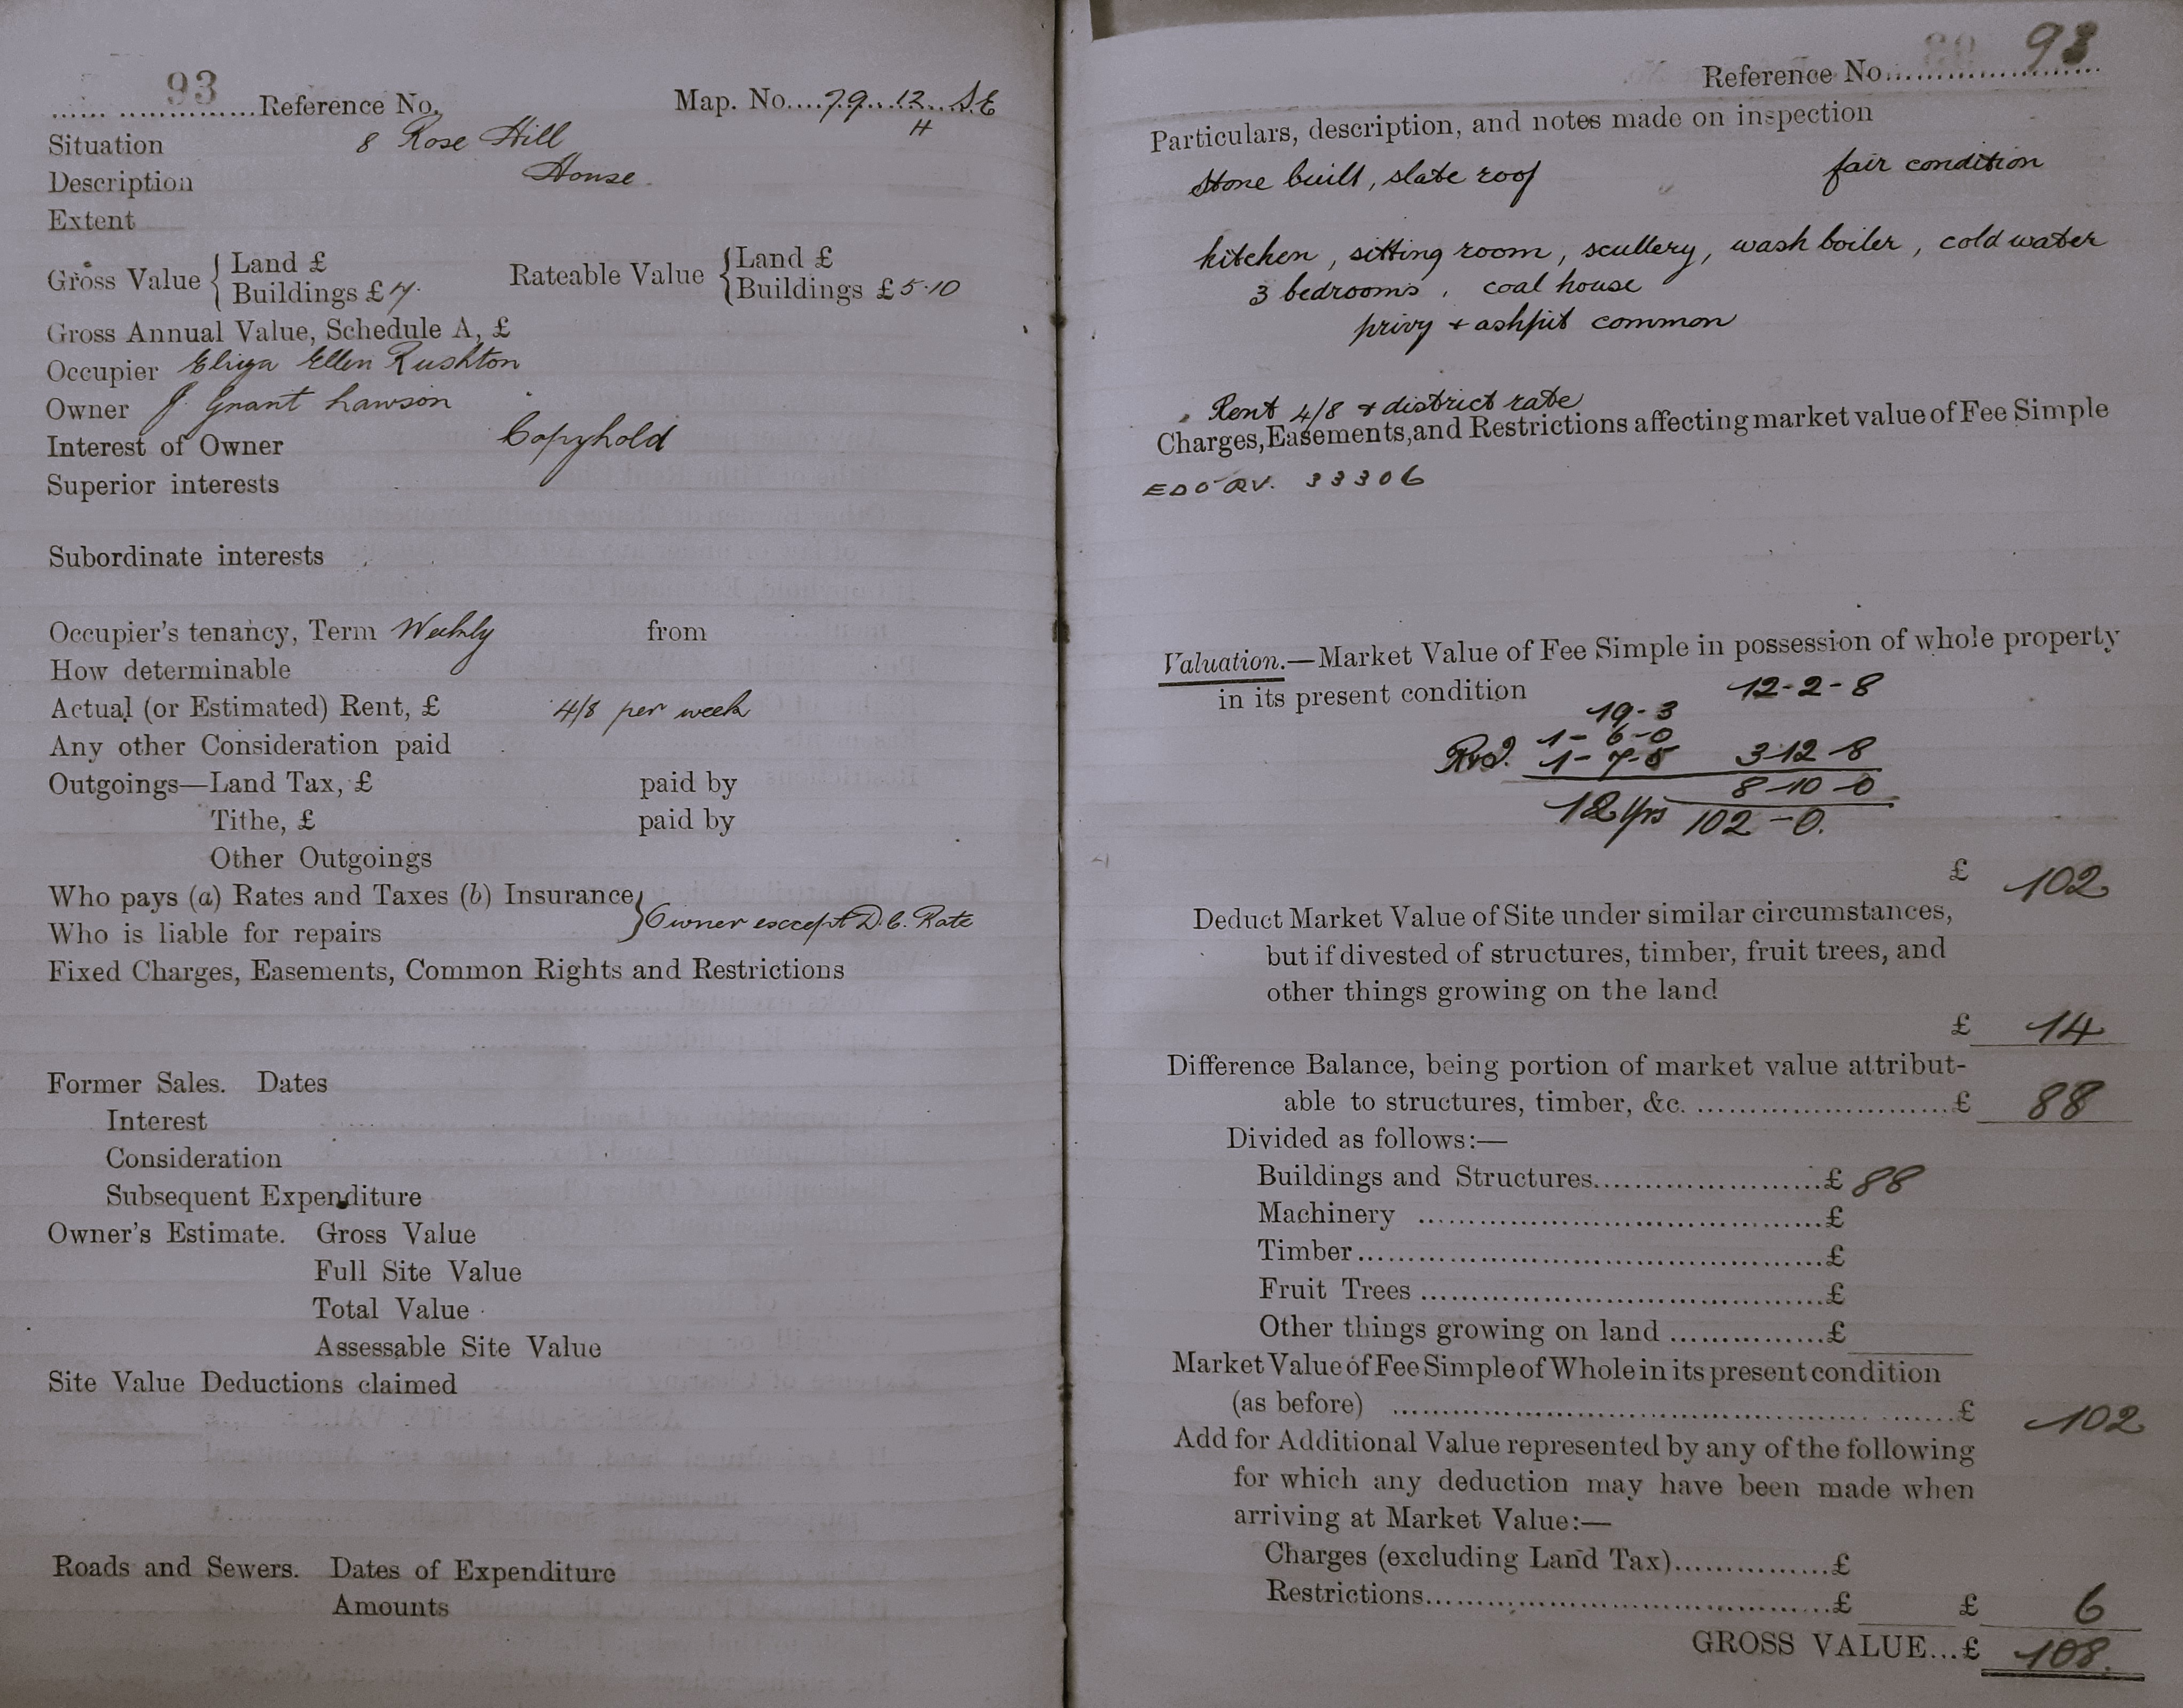 93 Reference No. Map. No. 79. 12. S.E
4
Situation 8 Rose Hill
Description House.
Extent
Gross Value { Land £
Buildings £ 7.
Rateable Value { Land £
Buildings £ 5·10
Gross Annual Value, Schedule A, £
Occupier Eliza Ellen Rushton
Owner J. Grant Lawson
Interest of Owner Copyhold
Superior interests
Subordinate interests
Occupier's tenancy, Term Weekly from
How determinable
Actual (or Estimated) Rent, £ 4/8 per week
Any other Consideration paid
Outgoings—Land Tax, £ paid by
Tithe, £ paid by
Other Outgoings
Who pays (a) Rates and Taxes (b) Insurance }
Who is liable for repairs } Owner except D.C. Rate
Fixed Charges, Easements, Common Rights and Restrictions
Former Sales. Dates
Interest
Consideration
Subsequent Expenditure
Owner's Estimate. Gross Value
Full Site Value
Total Value
Assessable Site Value
Site Value Deductions claimed
Roads and Sewers. Dates of Expenditure
Amounts
Reference No. 93
Particulars, description, and notes made on inspection
Stone built, slate roof fair condition
kitchen, sitting room, scullery, wash boiler, cold water
3 bedrooms, coal house
privy + ashpit common
Rent 4/8 + district rate
Charges, Easements, and Restrictions affecting market value of Fee Simple
33306
Valuation.—Market Value of Fee Simple in possession of whole property
in its present condition 12-2-8
19-3
1-6-0
1-7-5 3-12-8
8-10-0
12 Yrs 102-0.
£ 102
Deduct Market Value of Site under similar circumstances,
but if divested of structures, timber, fruit trees, and
other things growing on the land
£ 14
Difference Balance, being portion of market value attribut-
able to structures, timber, &c. £ 88
Divided as follows:—
Buildings and Structures £ 88
Machinery £
Timber £
Fruit Trees £
Other things growing on land £
Market Value of Fee Simple of Whole in its present condition
(as before) £ 102
Add for Additional Value represented by any of the following
for which any deduction may have been made when
arriving at Market Value:—
Charges (excluding Land Tax) £
Restrictions £ £ 6
GROSS VALUE...£ 108.